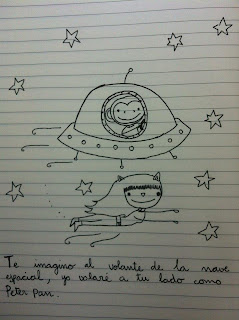 Te imagino al volante de la nave
espacial, yo volaré a tu lado como
Peter Pan.